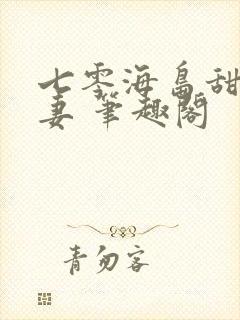 七零海岛甜
妻 筆趣閣
青勿客